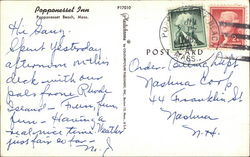 Popponesset Inn
Popponesset Beach, Mass.
P17010
Hi Gang -
Spent Yesterday
afternoon on this
deck with our
pals from Rhode
Island - Fun, fun,
fun - Having a
near-nice time. Weather
just fair so far -
M. J
POST CARD
MASS.
Order Dept
Nashua Corp
44 Franklin St
Nashua
N.H.